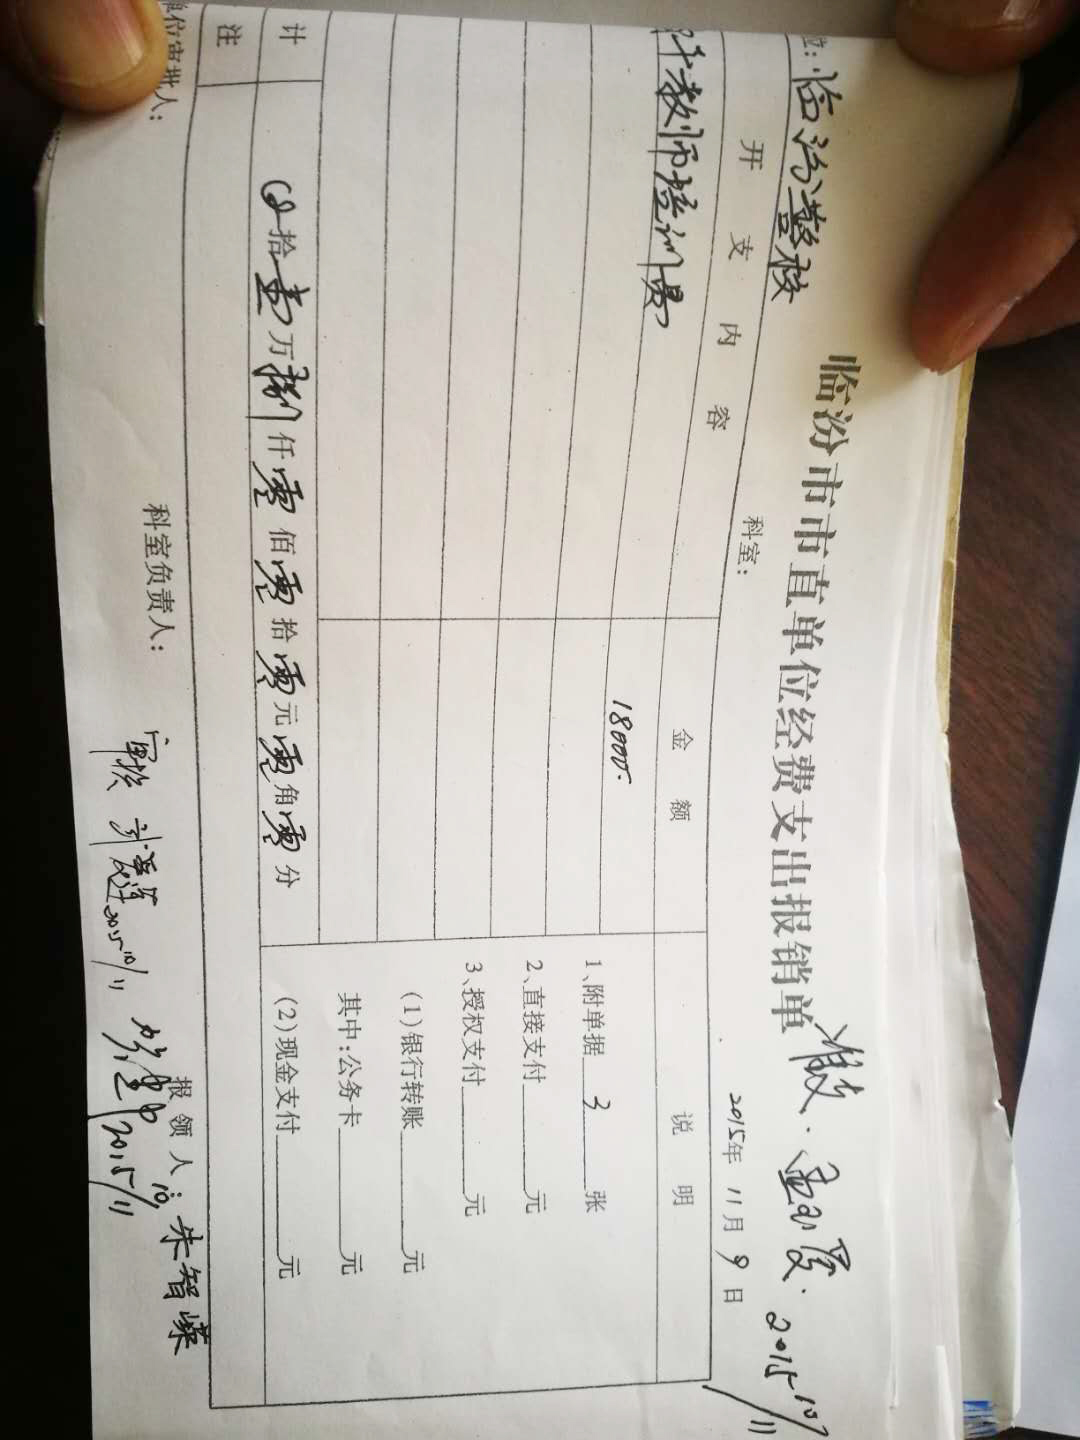 临汾市市直单位经费支出报销单
位：临汾警校
科室：
2015年 11月 9日
2015 10/11
开支内容 金额 说明
教师培训费 18000.
1、附单据 3 张
2、直接支付 元
3、授权支付 元
(1)银行转账 元
其中：公务卡 元
(2)现金支付 元
计 拾壹万捌仟零佰零拾零元零角零分
注
单位审批人： 科室负责人： 报领人：朱智嵘
审核 2015 10/11
2015 10/11